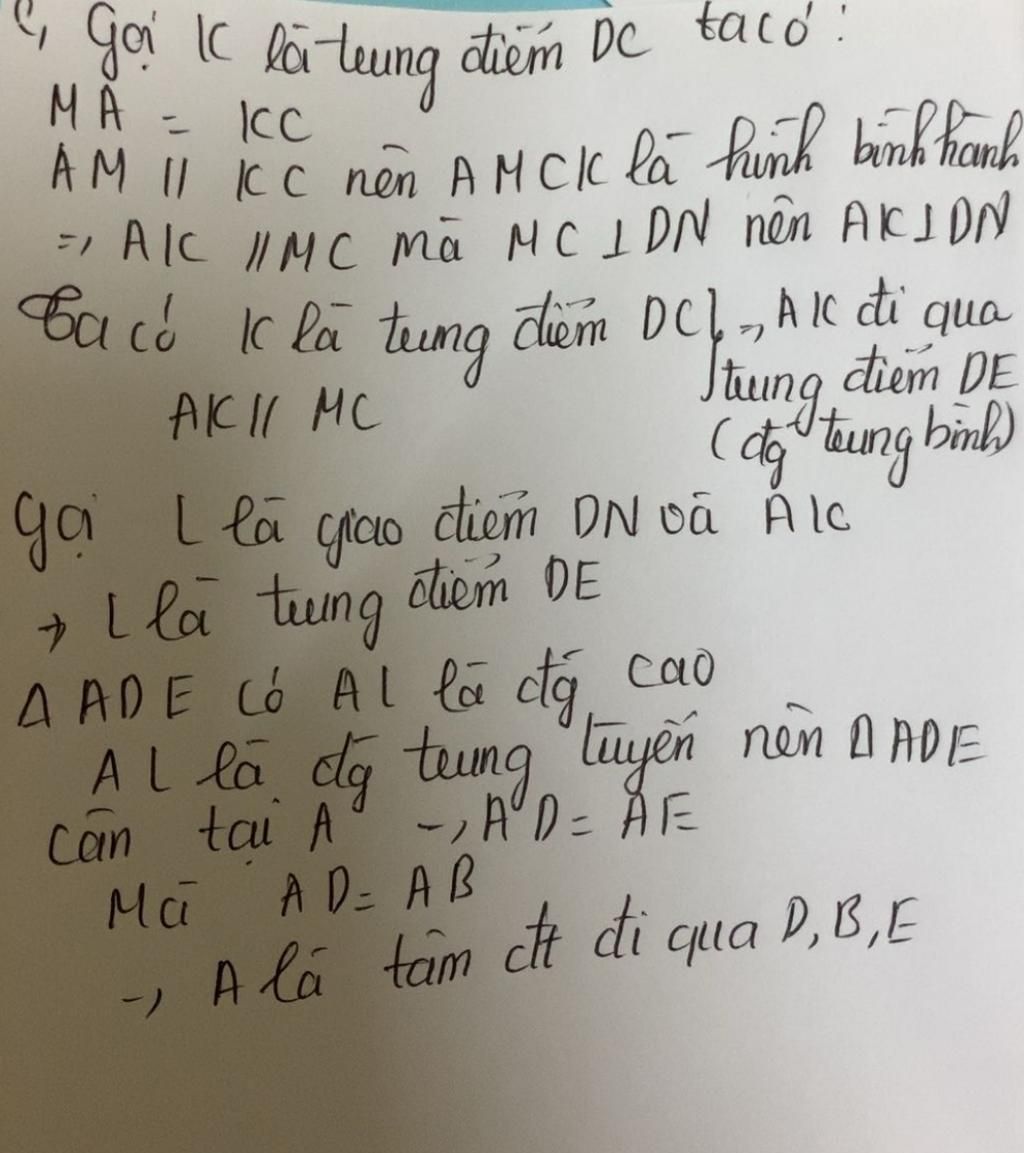 c, Gọi K là trung điểm DC ta có:
MA = KC
AM // KC nên AMCK là hình bình hành
=> AK // MC mà MC ⊥ DN nên AK ⊥ DN
Ta có K là trung điểm DC } => AK đi qua
trung điểm DE
AK // MC
(đg trung bình)
gọi L là giao điểm DN và AK
→ L là trung điểm DE
Δ ADE có AL là đg cao
AL là đg trung tuyến nên Δ ADE
cân tại A -> AD = AE
Mà AD = AB
-> A là tâm đt đi qua D, B, E